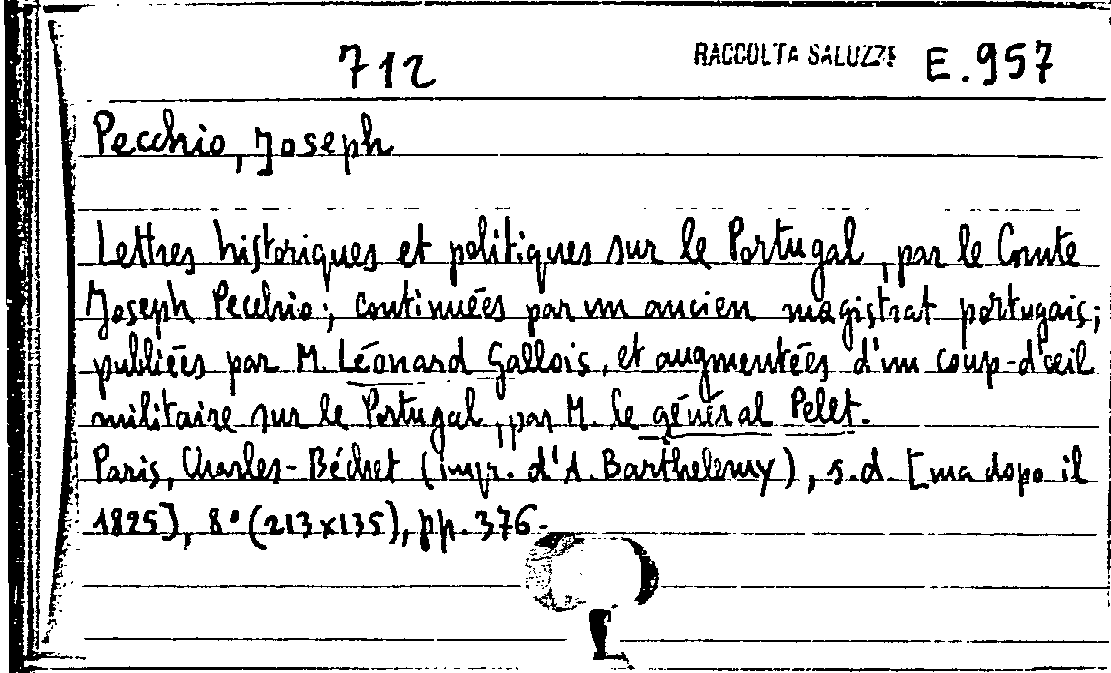 712 RACCOLTA SALUZZO E.957
Pecchio, Joseph
Lettres historiques et politiques sur le Portugal, par le Comte
Joseph Pecchio; continuées par un ancien magistrat portugais;
publiées par M. Léonard Gallois, et augmentées d'un coup-d'œil
militaire sur le Portugal, par M. le général Pelet.
Paris, Charles-Béchet (impr. d'A. Barthelemy), s.d. [ma dopo il
1825], 8° (213x135), pp. 376.